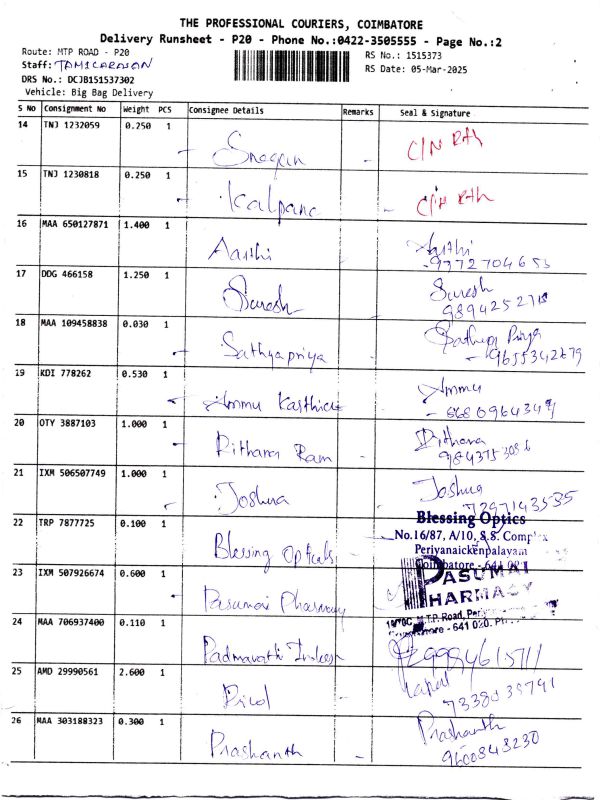 THE PROFESSIONAL COURIERS, COIMBATORE
Delivery Runsheet - P20 - Phone No.:0422-3505555 - Page No.:2
Route: MTP ROAD - P20
RS No.: 1515373
Staff:
RS Date: 05-Mar-2025
DRS No.: DCJB151537302
Vehicle: Big Bag Delivery
S No Consignment No Weight PCS Consignee Details Remarks Seal & Signature
14 TNJ 1232059 0.250 1
15 TNJ 1230818 0.250 1 Kalpana
16 MAA 650127871 1.400 1 Aarthi Arthi
9972704655
17 DDG 466158 1.250 1 Suresh Suresh
18 MAA 109458838 0.030 1 Sathyapriya Sathya Priya
9655342679
19 KDI 778262 0.530 1 Ammu Karthick Ammu
20 OTY 3887103 1.000 1 Ram
21 IXM 506507749 1.000 1 Joshua Joshua
7397143535
22 TRP 7877725 0.100 1 Blessing Opticals
Blessing Optics
No.16/87, A/10, S.S. Complex
Periyanaickenpalayam
Coimbatore - 641 020
23 IXM 507926674 0.600 1 Pasumai Pharmacy
PASUMAI
PHARMACY
M.T.P. Road,
- 641 020.
24 MAA 706937400 0.110 1 Padmavathi
25 AMD 29990561 2.600 1
7338039791
26 MAA 303188323 0.300 1 Prashanth Prashanth
9600843230